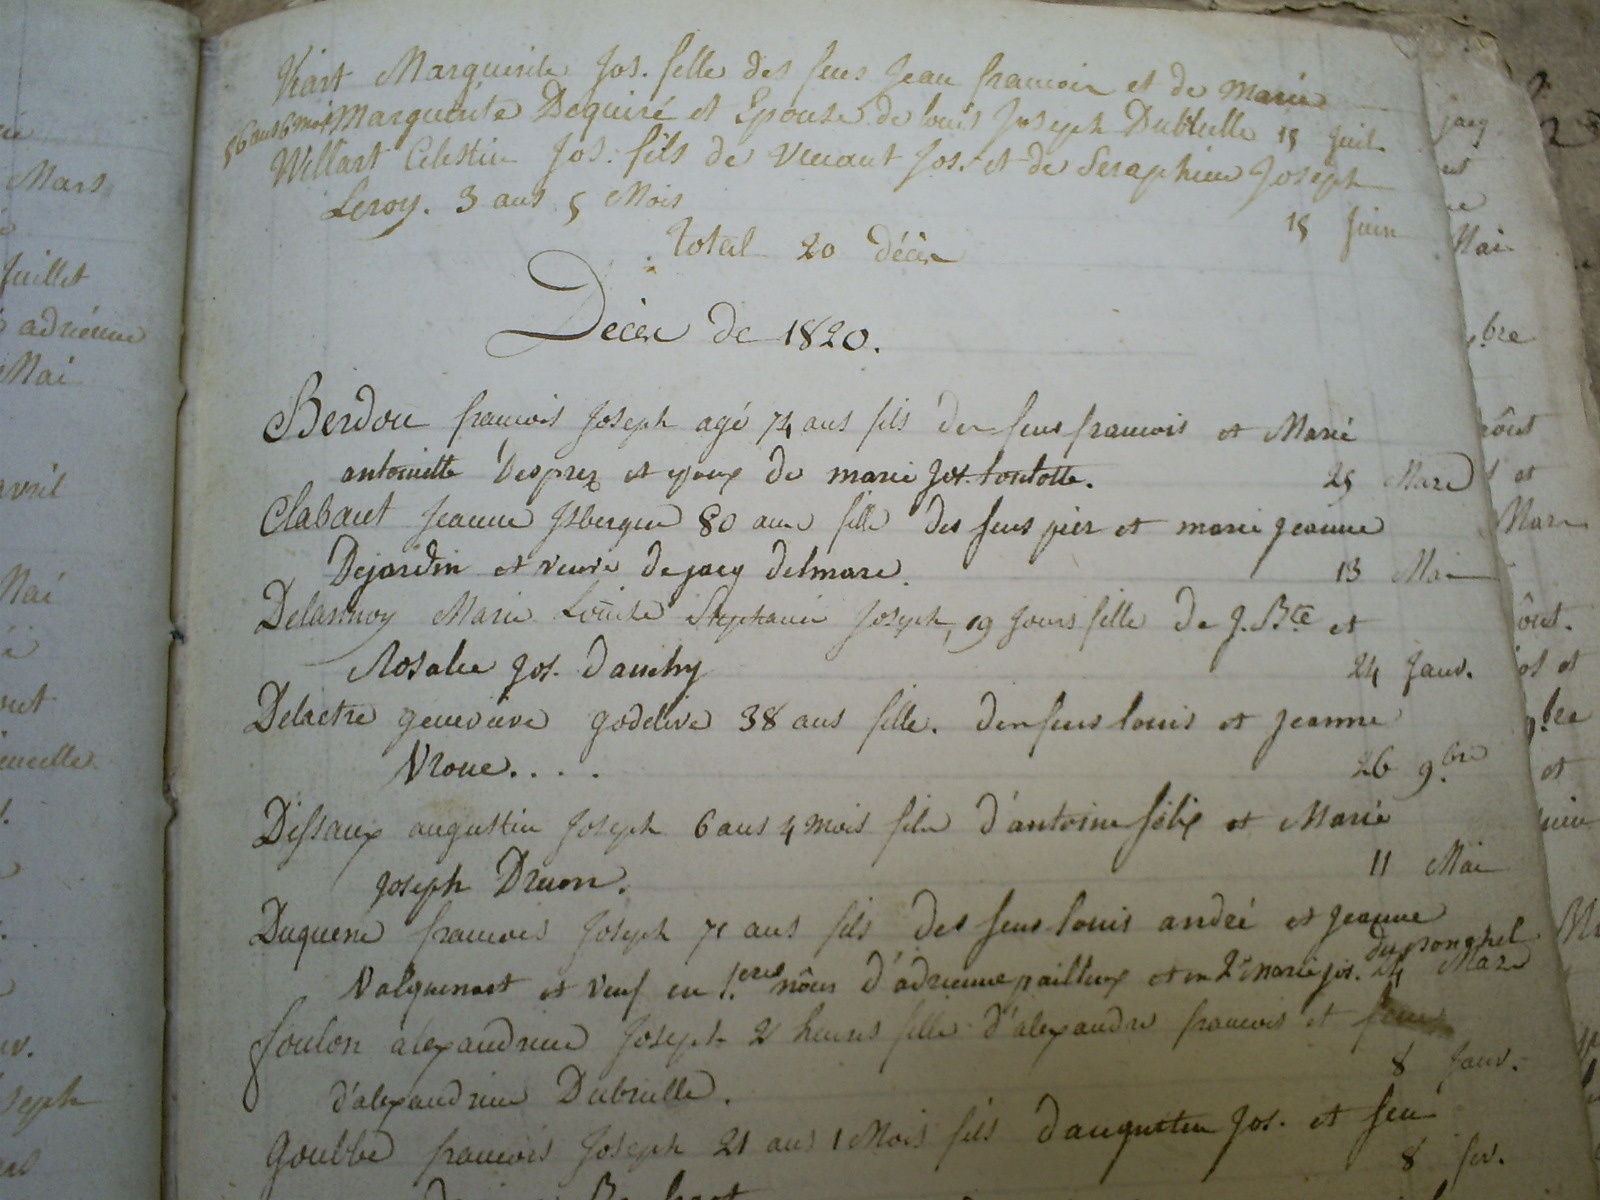 Viart Marguerite Jos. fille des feus Jean francois et de Marie
56 ans 6 mois Marguerite Dequiré et Epouse de louis Joseph Dubrulle 15 Juil.
Willart Celestin Jos. fils de Vincent Jos. et de Seraphine Joseph
Leroy. 3 ans 5 Mois 15 Juin
Total 20 décès
Décès de 1820.
Berdou francois Joseph agé 74 ans fils des feus francois et Marie
antoinette Desprez et epoux de marie Jos. toulotte. 25 Mars
Clabaut Jeanne Isbergue 80 ans fille des feus pier et marie jeanne
Dejardin et veuve de jacq delmare. 13 Mai
Delannoy Marie Louise Stephanie Joseph, 19 Jours fille de J. Bte et
Rosalie Jos. Dauchy 24 Janv.
Delaetre genevieve godelive 38 ans fille. des feus louis et jeanne
Vroue.... 26 9.bre
Dissaux augustin Joseph 6 ans 4 mois fils d'antoine félix et Marie
Joseph Druon. 11 Mai
Duquene francois Joseph 71 ans fils des feus louis andré et jeanne
Valquenart et veuf en 1.eres nôces d'adrienne pailleux et en 2e marie jos. dusonghel 24 Mars
foulon alexandrine Joseph 2 heures fille d'alexandre francois et feue
d'alexandrine Dubrulle. 8 Janv.
Goubbe francois Joseph 21 ans 1 Mois fils d'augustin Jos. et feu
8 fev.
Mars
Juillet
adrienne
Mai
avril
Mai
Joseph
jacq
Mai
bre
août
et
Mars
ôut.
et
9.bre
et